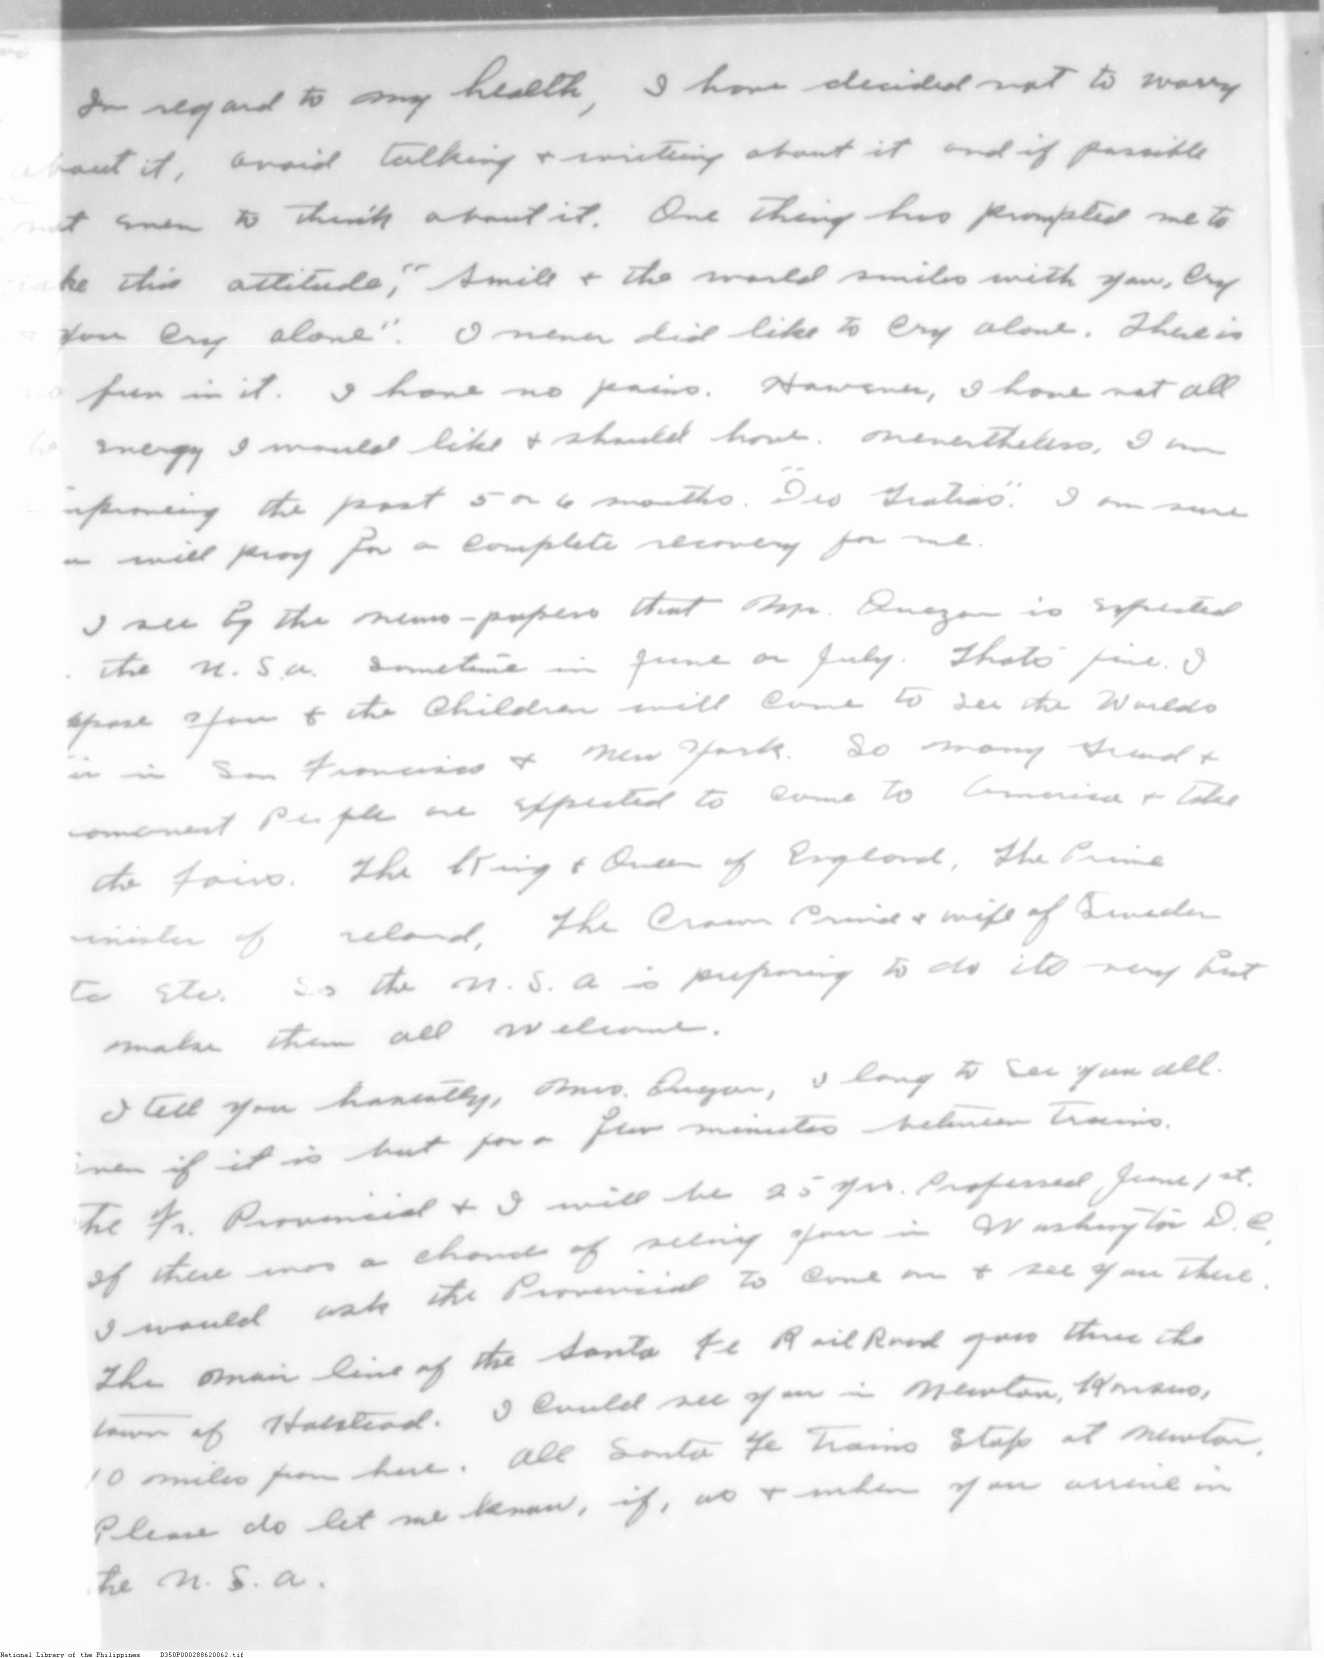 In regard to my health, I have decided not to worry
about it, avoid talking & writing about it and if possible
not even to think about it. One thing has prompted me to
take this attitude, "Smile & the world smiles with you, Cry
& You Cry alone". I never did like to Cry alone. There is
no fun in it. I have no pains. However, I have not all
the energy I would like & should have. Nevertheless, I am
improving the past 5 or 6 months. "Deo Gratias". I am sure
will pray for a complete recovery for me.
I see by the news-papers that Mr. Quezon is expected
the U.S.A. Sometime in June or July. Thats fine. I
spose you & the Children will come to see the Worlds
in San Francisco & New York. So many Great &
Prominent People are expected to come to America & take
the fairs. The King & Queen of England, The Prime
minister of reland, The Crown Prince & wife of Sweden
Etc. So the U.S.A is preparing to do its very best
make them all welcome.
I tell you honestly, Mrs. Quezon, I long to see you all.
even if it is but for a few minutes between Trains.
The Fr. Provincial & I will be 25 yrs. Professed June 1st.
If there was a chance of seeing you in Washington D.C.
I would ask the Provincial to come on & see you there.
The Main line of the Santa Fe Rail Road goes thru the
town of Halstead. I Could see you in Newton, Kansas,
10 miles from here. All Santa Fe Trains Stop at Newton.
Please do let me know, if, as & when you arrive in
the U.S.A.
National Library of the Philippines D350P000288620062.tif